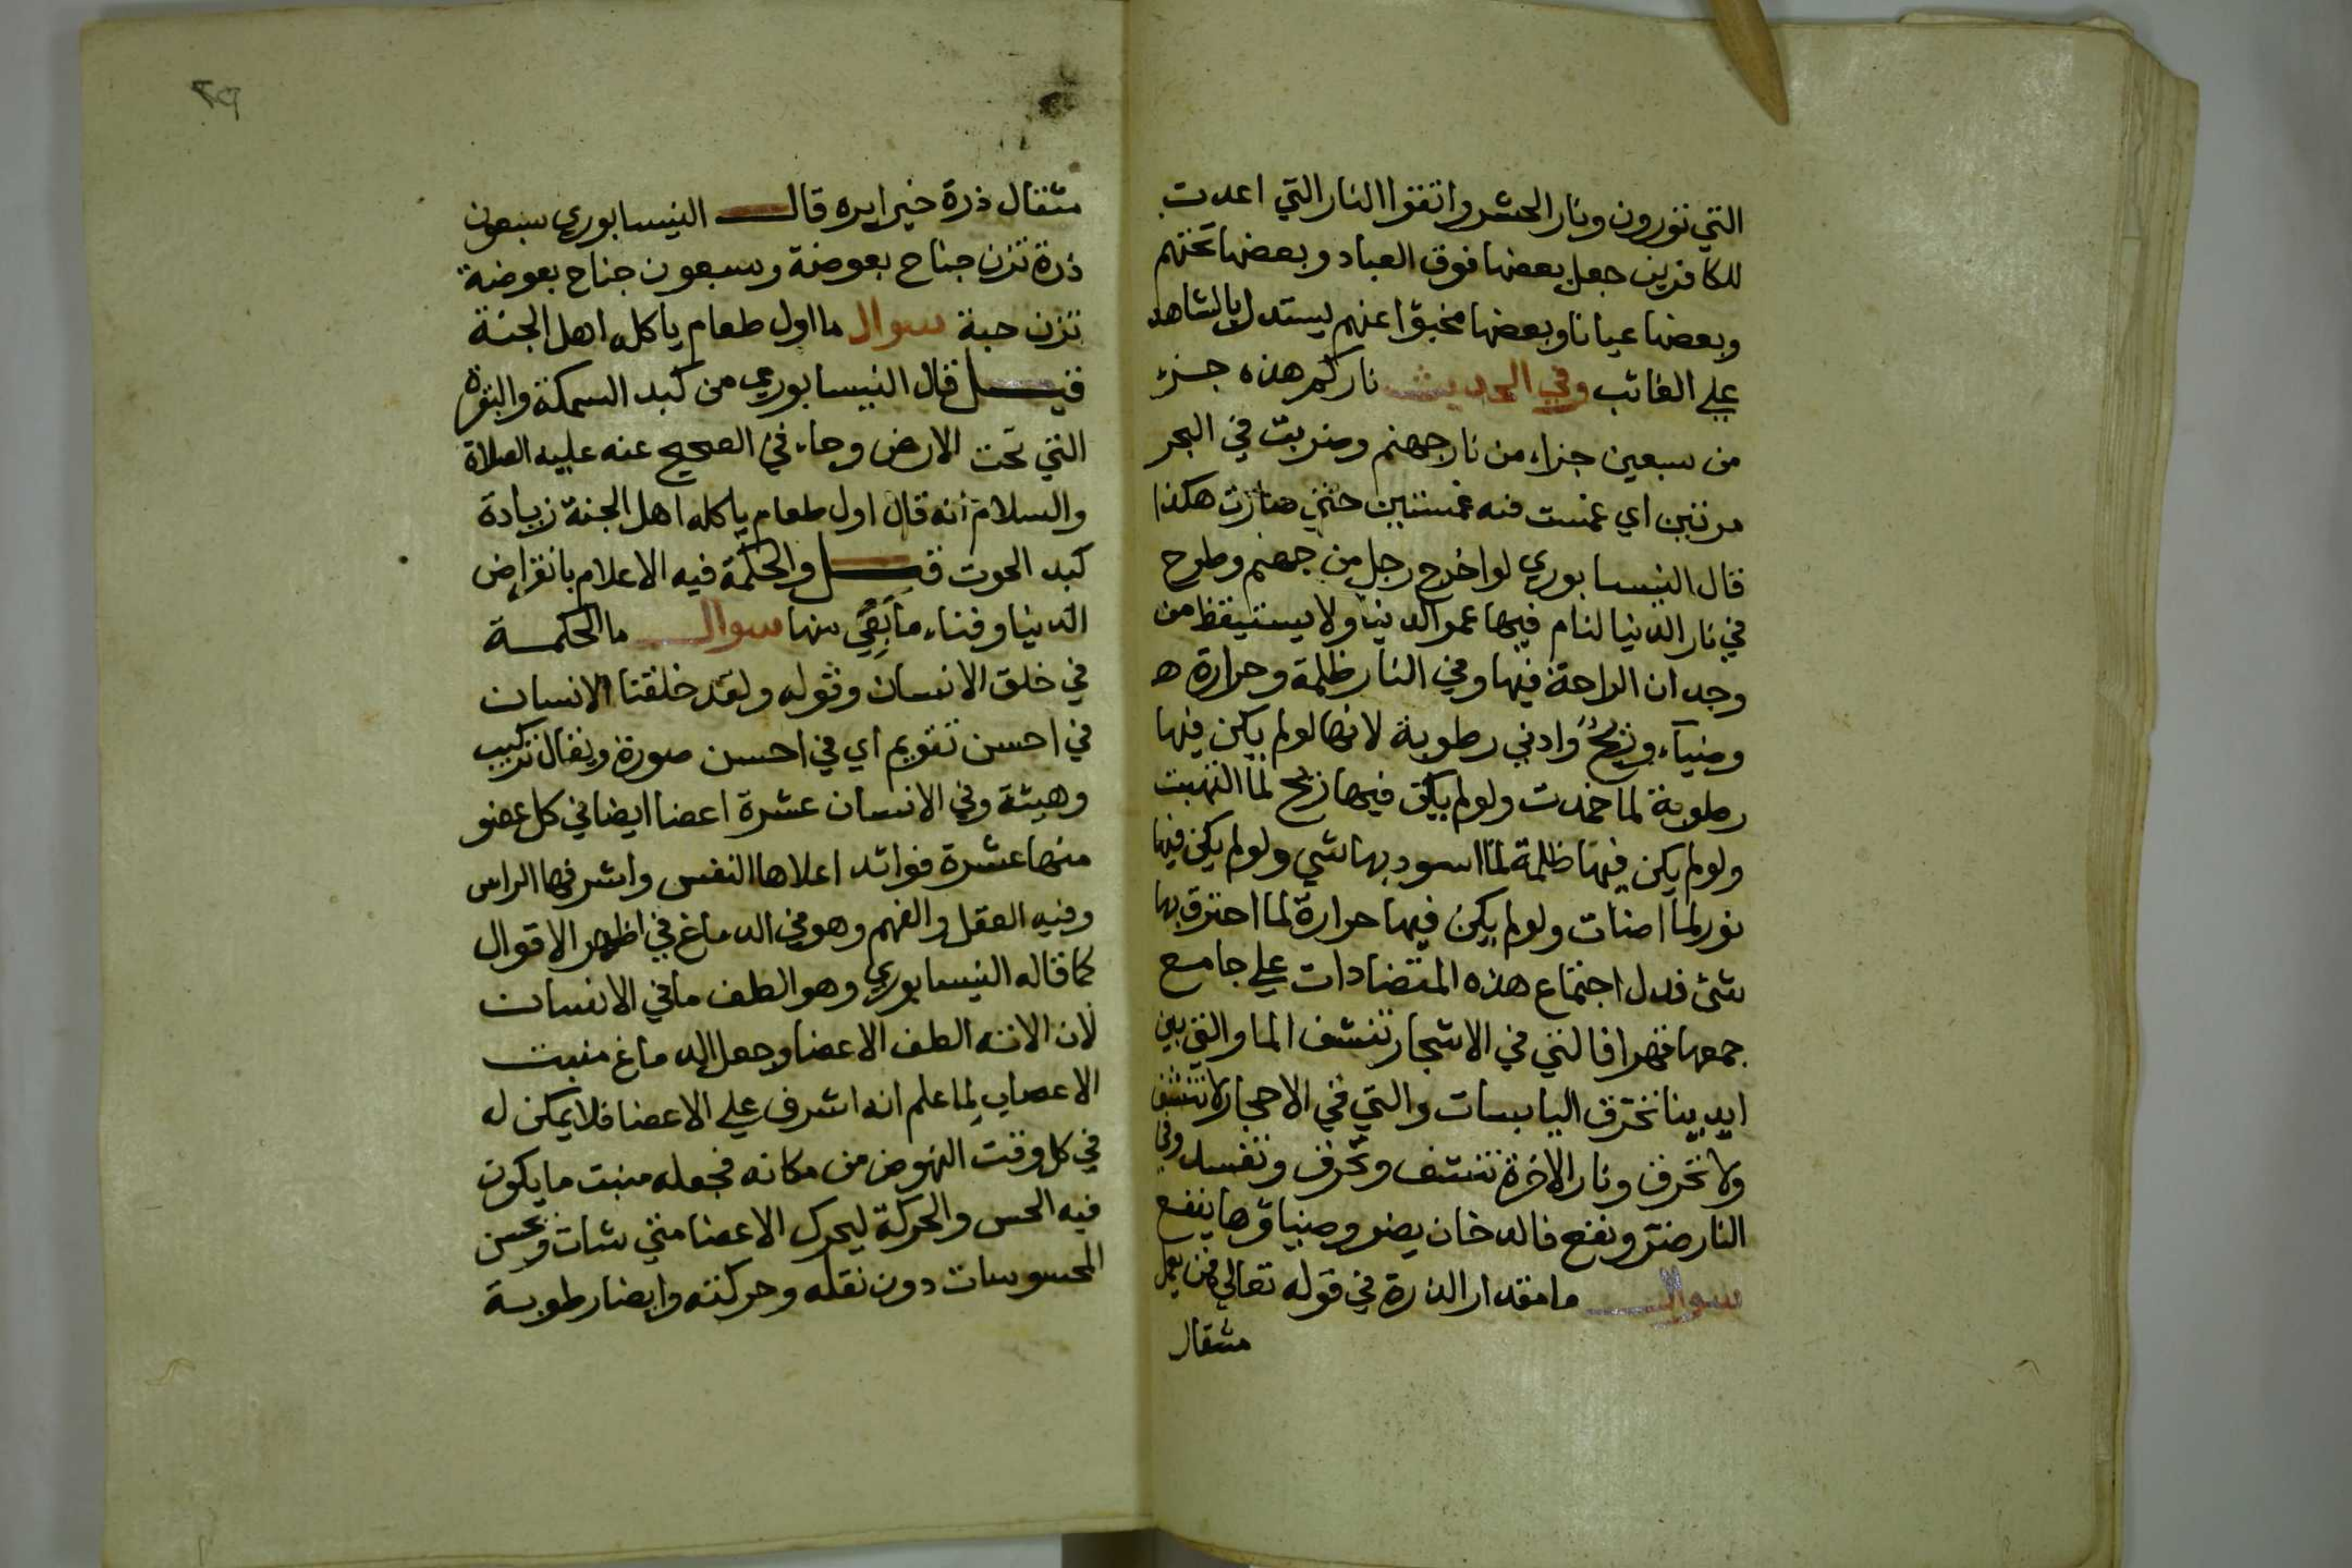 التي تورون ونار الحشر واتقوا النار التي اعدت
للكافرين جعل بعضها فوق العباد وبعضها تحتهم
وبعضها عيانا وبعضها مخبوا عنهم ليستدل بالشاهد
علي الغائب وفي الحديث ناركم هذه جزء
من سبعين جزاء من نار جهنم وضربت في البحر
مرتين اي غمست فيه غمستين حتي صارت هكذا
قال النيسابوري لو اخرج رجل من جهنم وطرح
في نار الدنيا لنام فيها عمر الدنيا ولا يستيقظ من
وجدان الراحة فيها وفي النار ظلمة وحرارة
وضياء وريح وادني رطوبة لانها لو لم يكن فيها
رطوبة لما خمدت ولو لم يكن فيها ريح لما التهبت
ولو لم يكن فيها ظلمة لما اسود بها شي ولو لم يكن فيها
نور لما اضات ولو لم يكن فيها حرارة لما احترق بها
شئ فدل اجتماع هذه المتضادات علي جامع
جمعها قهرا فالتي في الاشجار تنشف الما والتي بين
ايدينا تحرق اليابسات والتي في الاحجار لا تنشف
ولا تحرق ونار الاخرة تنشف وتحرق وتفسد وفي
النار ضر ونفع فالدخان يضر وضياؤها ينفع
سوال ما مقدار الذرة في قوله تعالي فمن يعمل
مثقال
مثقال ذرة خيرا يره قال النيسابوري سبعون
ذرة تزن جناح بعوضة وسبعون جناح بعوضة
تزن حبة سوال ما اول طعام ياكله اهل الجنة
قيل قال النيسابوري من كبد السمكة والثورة
التي تحت الارض وجاء في الصحيح عنه عليه الصلاة
والسلام انه قال اول طعام ياكله اهل الجنة زيادة
كبد الحوت قيل والحكمة فيه الاعلام بانقراض
الدنيا وفناء ما بقي منها سوال ما الحكمة
في خلق الانسان وقوله ولقد خلقنا الانسان
في احسن تقويم اي في احسن صورة ويقال تركيب
وهيئة وفي الانسان عشرة اعضا ايضا في كل عضو
منها عشرة فوائد اعلاها النفس واشرفها الراس
وفيه العقل والفهم وهو في الدماغ في اظهر الاقوال
كما قاله النيسابوري وهو الطف ما في الانسان
لان الطف الاعضا وجعل الدماغ منبت
الاعصاب لما علم انه اشرف علي الاعضا فلا يمكن له
في كل وقت النهوض من مكانه فجعله منبت ما يكون
فيه الحس والحركة ليحرك الاعضا متي شات وتحس
المحسوسات دون نقله وحركته وايضا رطوبة